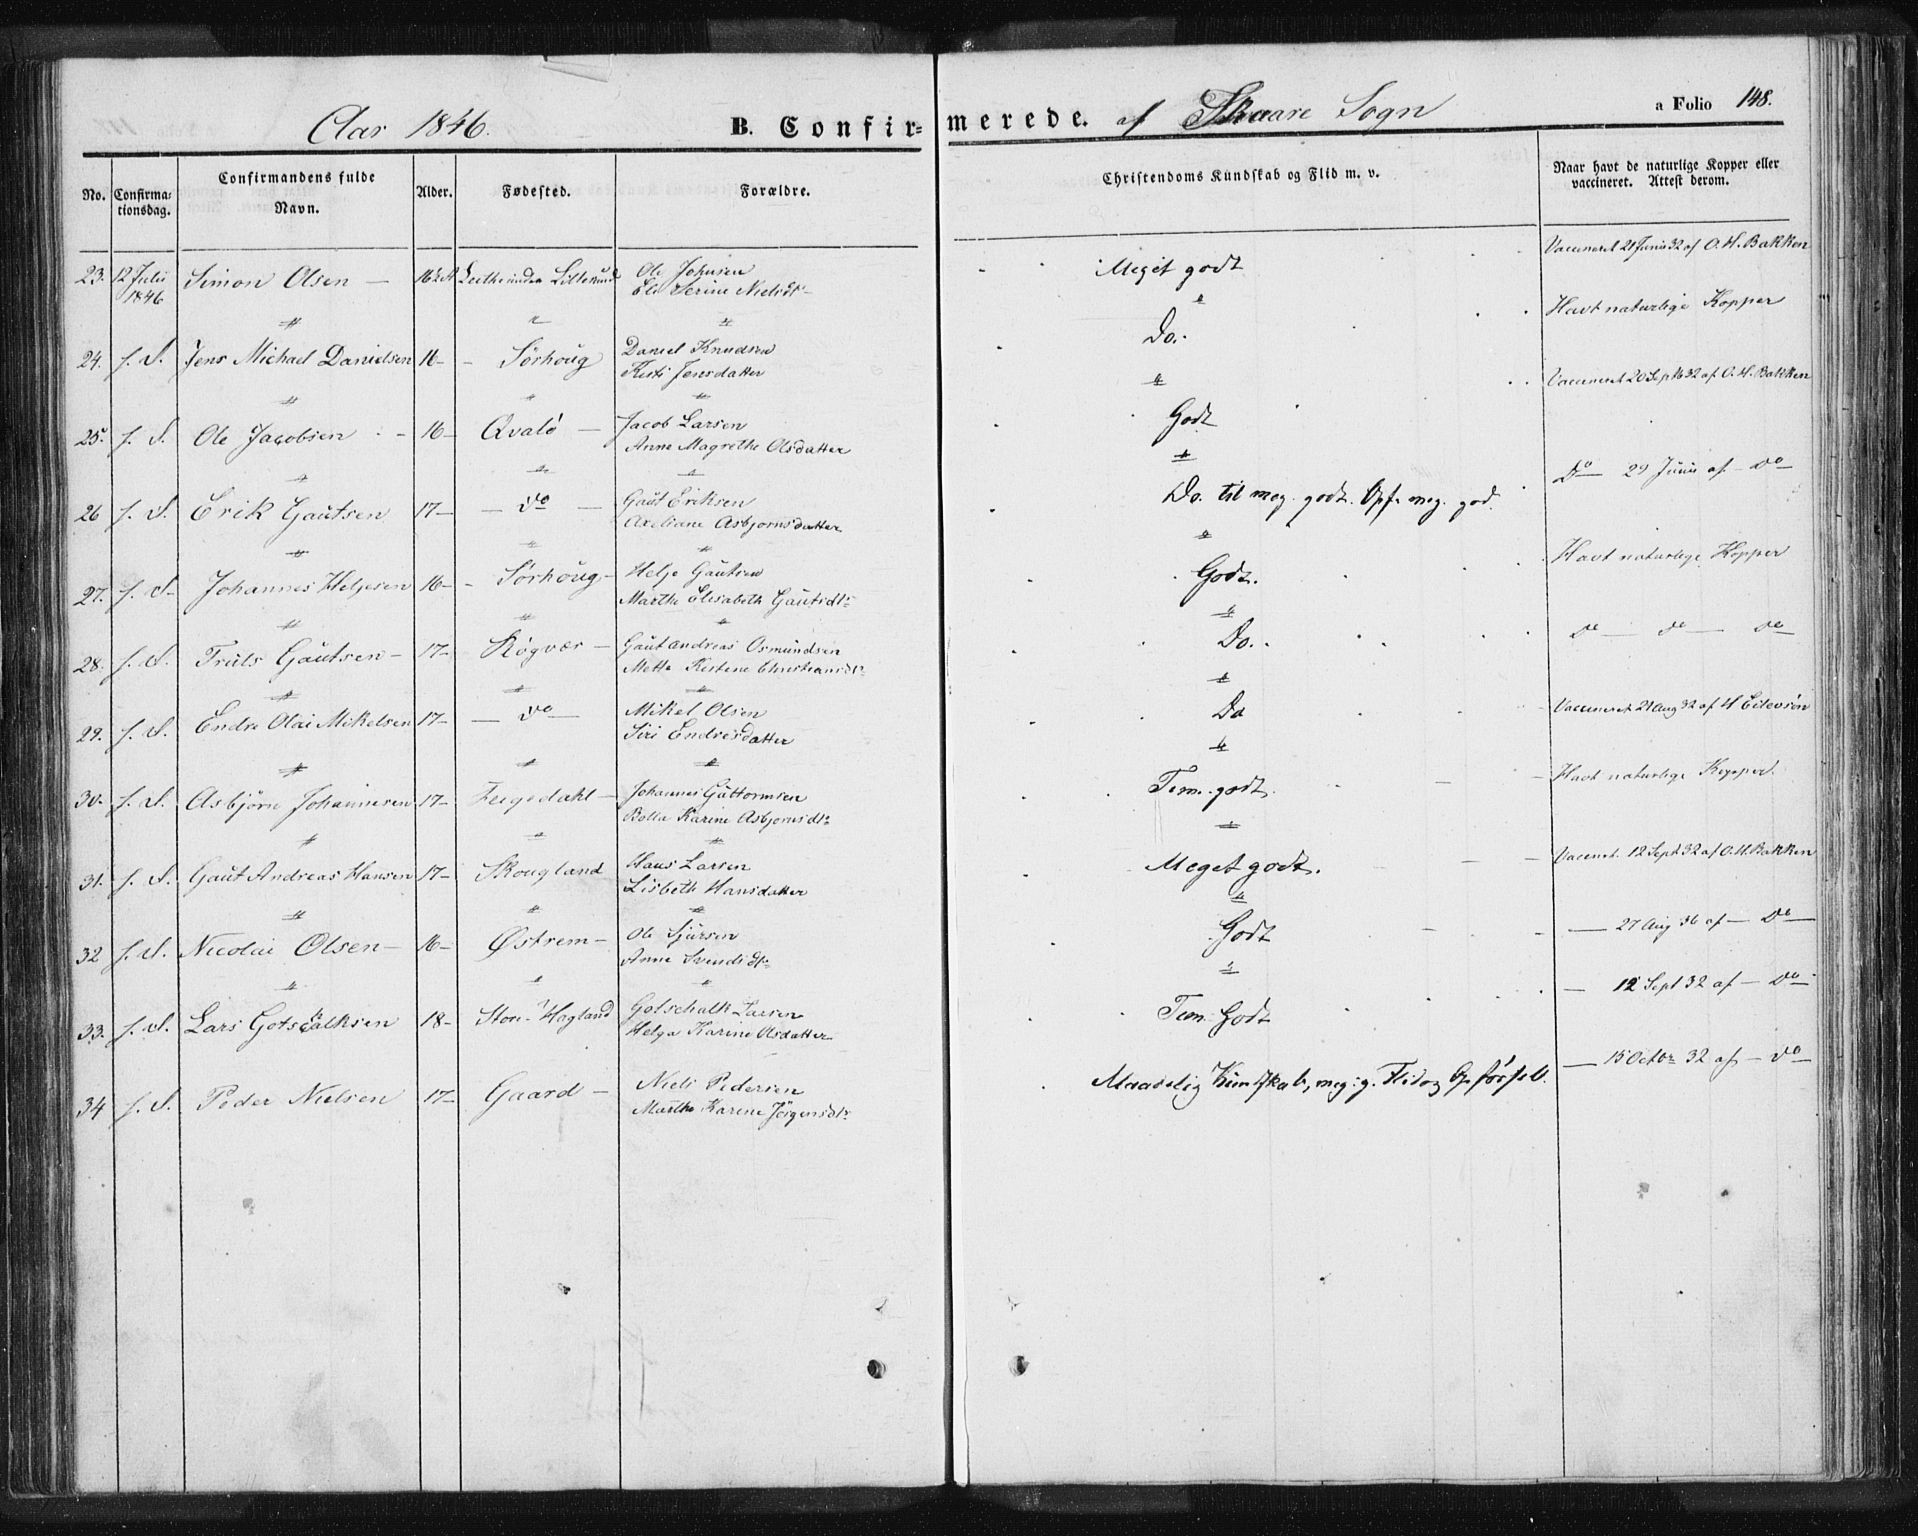 Aar 1846. B. Confirmerede. af Skaare Sogn a Folio 148.
No. Confirmationsdag. Confirmandens fulde Navn. Alder. Fødested. Forældre. Christendoms Kundskab og Flid m. v. Naar havt de naturlige Kopper eller vaccineret. Attest derom.
23. 12 Julii 1846 Simon Olsen — 16 Ole Johnsen Meget godt Vaccineret 21 Junii 32 af O. H. Bakken
Serine Nielsdtr
24. f. d. Jens Michael Danielsen 16 - Sörhoug Daniel Knudsen Do. Havt naturlige Kopper
Kisti Jensdatter
25. f. d. Ole Jacobsen - 16 - Qvalö — Jacob Larsen Godt Vaccineret 20 Sept 32 af O. H. Bakken
Anne Magrethe Olsdatter
26 f. d. Erik Gautsen 17 — do — Gaut Eriksen Do. til meg. godt. Opf. meg. god. Do — 29 Junii af — do
Axeliane Asbjornsdatter
27. f. d. Johannes Heljesen 16 - Sörhoug - Helje Gautsen Godt. Havt naturlige Kopper
Marthe Elisabeth Gautsdtr
28. f. d. Truls Gautsen - 17 - Rögvær - Gautandreas Osmundsen Do. do — do — do
Mette Kirstene Christiansdtr
29. f. d. Endre Olai Mikelsen 17 — do — Mikel Olsen Do Vaccineret 21 Aug 32 af H Eilevsön
Siri Endresdatter
30. f. d. Asbjörn Johannesen 17 - Feigedahl - Johannes Guttormsen Tem. godt. Havt naturlige Kopper.
Bolla Karine Asbjornsdtr
31. f. d. Gaut Andreas Hansen 17 - Skougland Hans Larsen Meget godt. Vaccinet. 12 Sept 32 af O. H. Bakken
Lisbeth Hansdatter
32 f. d. Nicolai Olsen - 16 - Østrem - Ole Sjursen Godt — 27 Aug 36 af — Do
Anne Svendsdtr
33. f. d. Lars Gotschalksen 18 - Store-Hagland Gotschalk Larsen Tem. Godt — 12 Sept 32 af — Do
Helga Karine Olsdatter
34 f. d. Peder Nielsen 17 - Gaard - Niels Pedersen Maadelig Kundskab, meg: g. Flid og Opförsel. — 15 Octbr 32 af — do
Marthe Karine Jörgensdtr